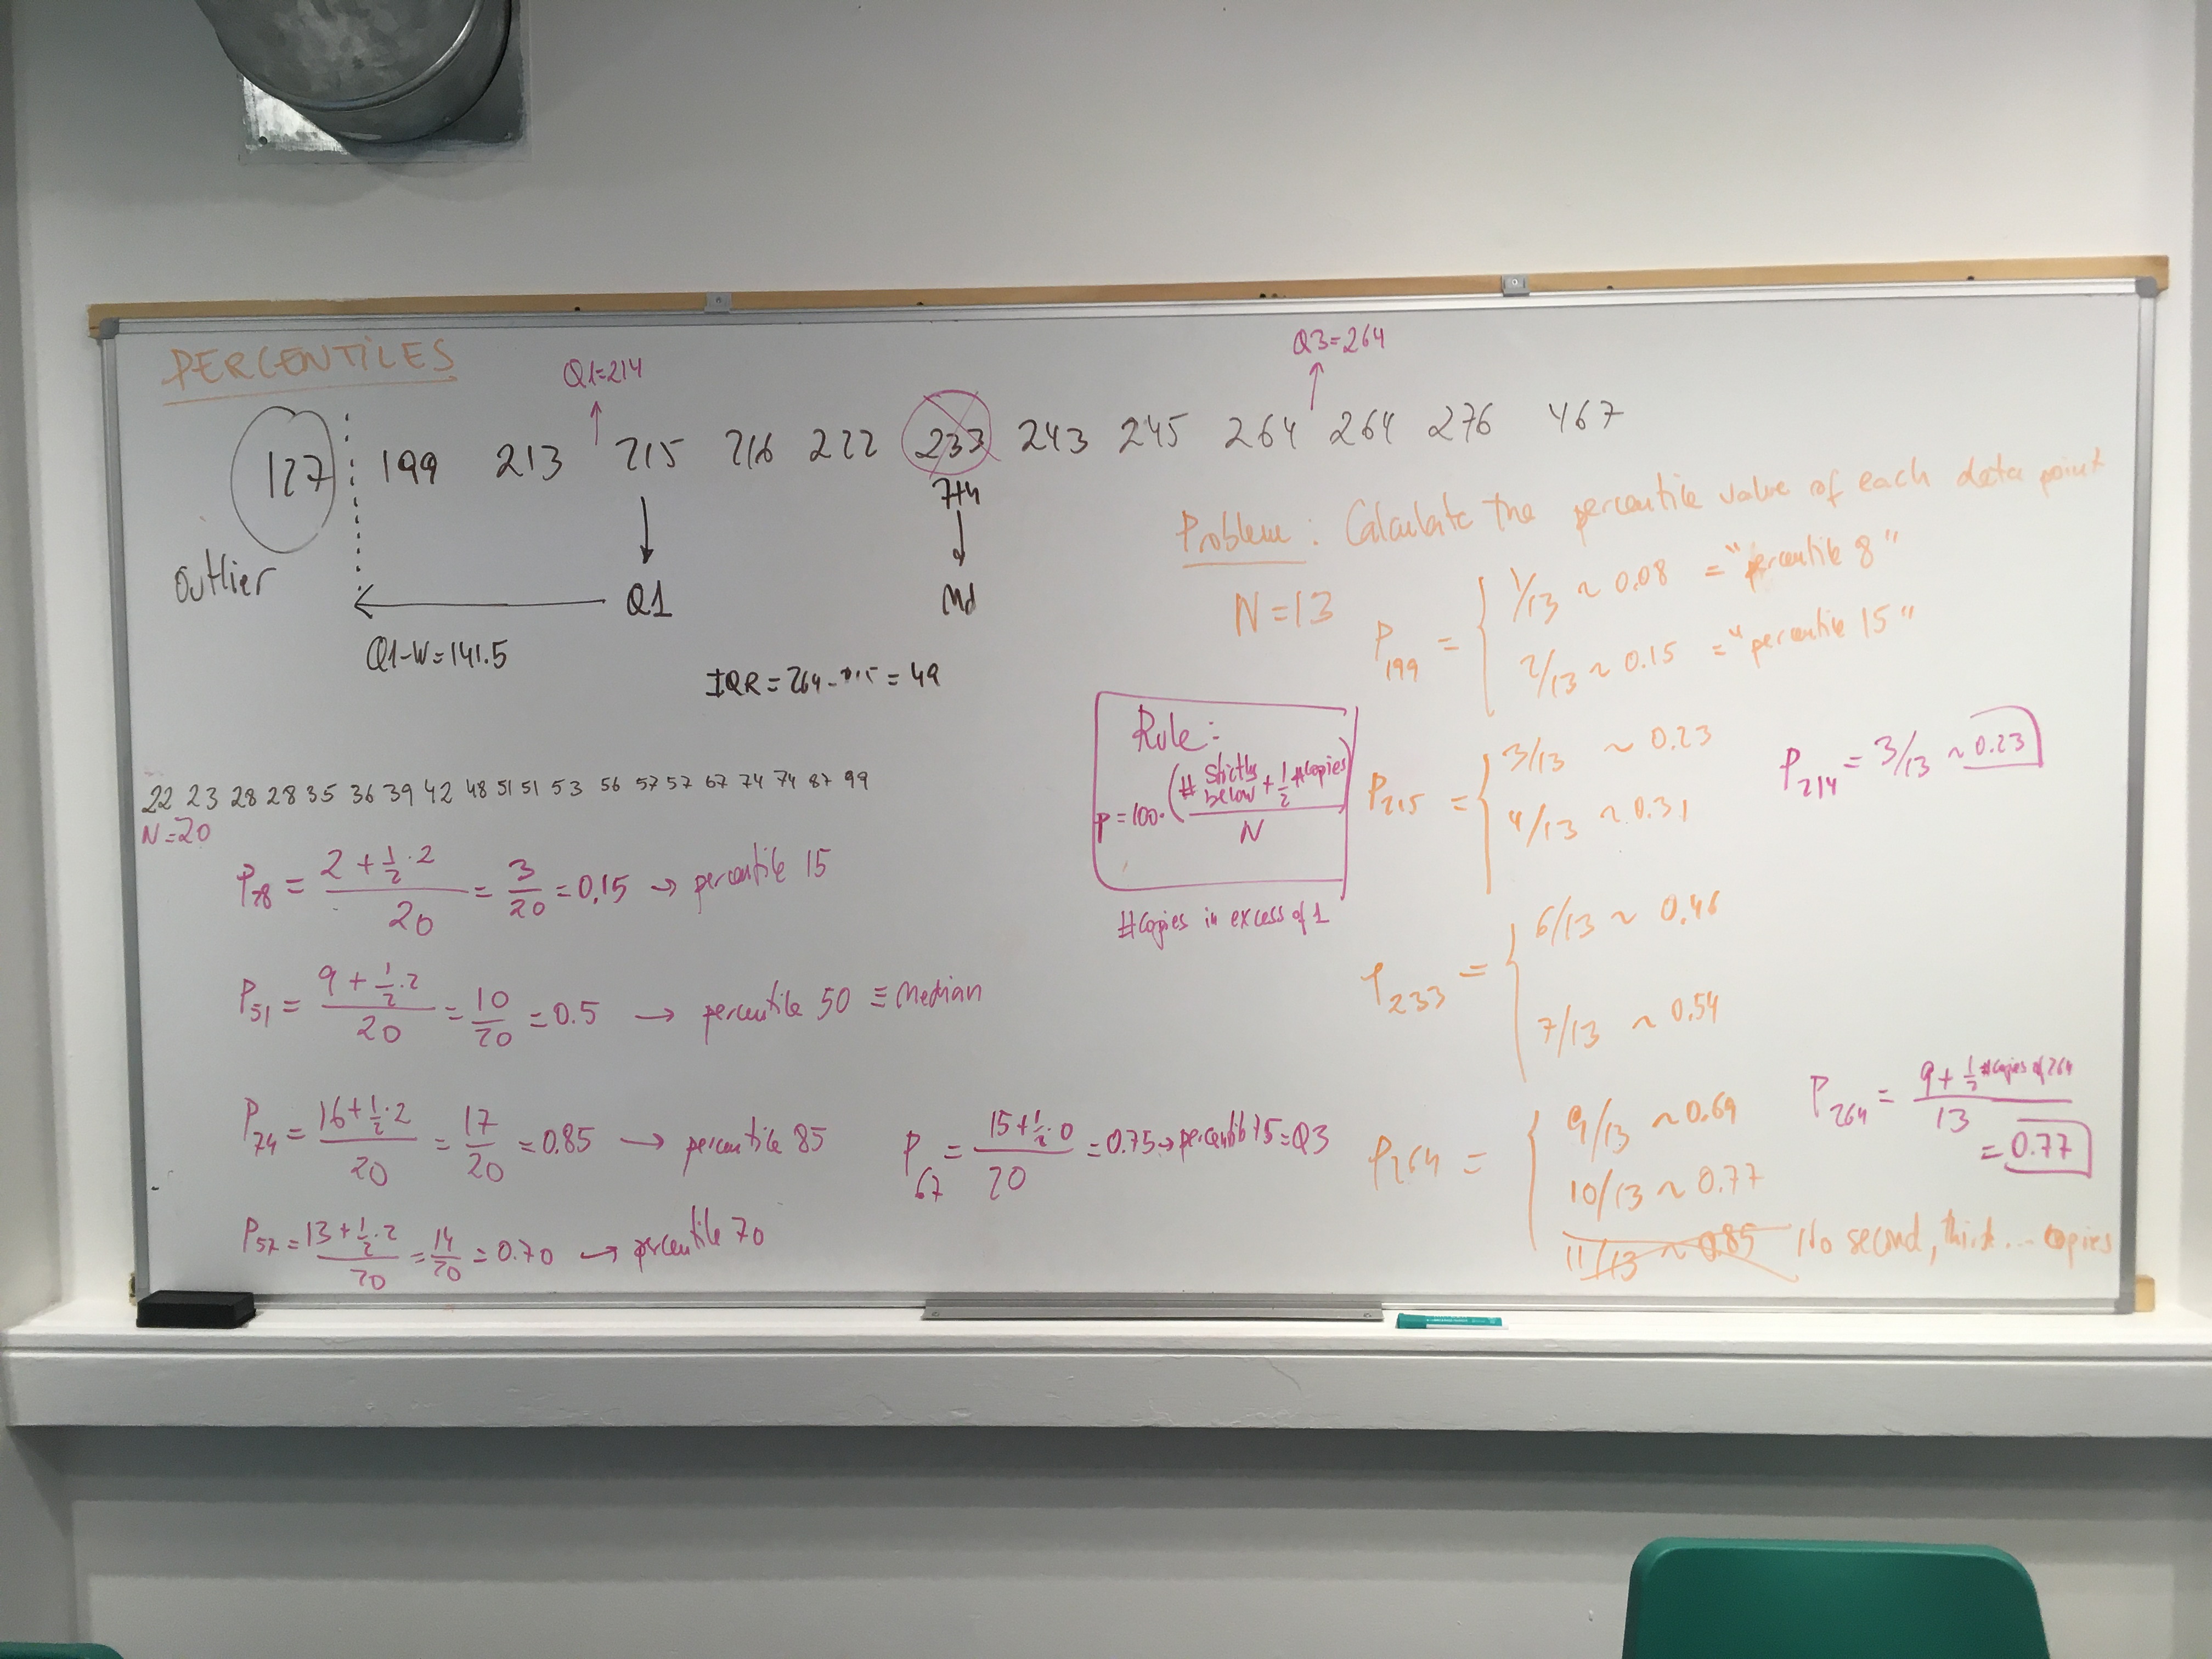 PERCENTILES
Q1=214
Q3=264
127 199 213 215 216 222 233 243 245 264 264 276 467
7th
outlier
Q1
Md
Q1-W=141.5
IQR = 264 - 215 = 49
Problem: Calculate the percentile value of each data point
N=13
P199 = { 1/13 ~ 0.08 = "percentile 8"
2/13 ~ 0.15 = "percentile 15"
P215 = { 3/13 ~ 0.23
4/13 ~ 0.31
P214 = 3/13 ~ 0.23
P233 = { 6/13 ~ 0.46
7/13 ~ 0.54
P264 = { 9/13 ~ 0.69
10/13 ~ 0.77
11/13 ~ 0.85 No second, third... copies
P264 = (9 + 1/2 #copies of 264)/13
= 0.77
Rule:
p = 100·(# strictly below + 1/2 #copies)/N
#copies in excess of 1
22 23 28 28 35 36 39 42 48 51 51 53 56 57 57 67 74 74 87 99
N=20
P28 = (2 + 1/2·2)/20 = 3/20 = 0.15 → percentile 15
P51 = (9 + 1/2·2)/20 = 10/20 = 0.5 → percentile 50 ≡ Median
P74 = (16 + 1/2·2)/20 = 17/20 = 0.85 → percentile 85
P67 = (15 + 1/2·0)/20 = 0.75 → percentile 75 = Q3
P57 = (13 + 1/2·2)/20 = 14/20 = 0.70 → percentile 70